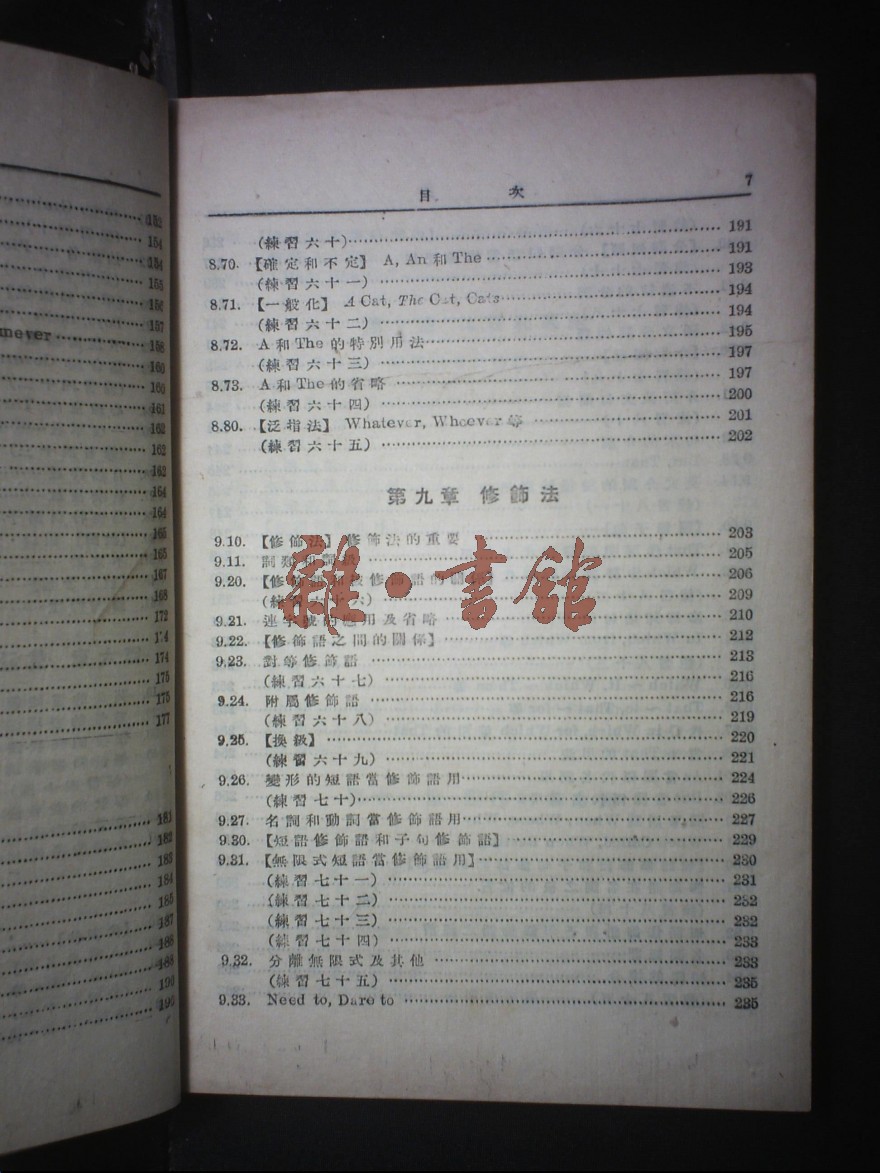 152
154
154
155
156
157
mever 158
160
160
161
162
162
162
164
164
165
165
167
168
172
174
174
175
175
177
181
182
183
184
185
187
188
188
190
190
目 次 7
(練習六十) 191
8.70. 【確定和不定】 A, An 和 The 191
(練習六十一) 193
8.71. 【一般化】 A Cat, The Cat, Cats 194
(練習六十二) 194
8.72. A 和 The 的特別用法 195
(練習六十三) 197
8.73. A 和 The 的省略 197
(練習六十四) 200
8.80. 【泛指法】 Whatever, Whoever 等 201
(練習六十五) 202
第九章 修飾法
9.10. 【修飾法】 修飾法的重要 203
9.11. 詞類和詞級 205
9.20. 【修飾語和被修飾語的關係】 206
(練習六十六) 209
9.21. 連字號的應用及省略 210
9.22. 【修飾語之間的關係】 212
9.23. 對等修飾語 213
(練習六十七) 216
9.24. 附屬修飾語 216
(練習六十八) 219
9.25. 【換級】 220
(練習六十九) 221
9.26. 變形的短語當修飾語用 224
(練習七十) 226
9.27. 名詞和動詞當修飾語用 227
9.30. 【短語修飾語和子句修飾語】 229
9.31. 【無限式短語當修飾語用】 230
(練習七十一) 231
(練習七十二) 232
(練習七十三) 232
(練習七十四) 233
9.32. 分離無限式及其他 233
(練習七十五) 235
9.33. Need to, Dare to 235
雜·書館